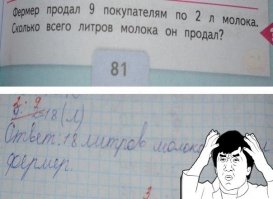 Фермер продал 9 покупателям по 2 л молока.
Сколько всего литров молока он продал?
81
18 (л)
Ответ: 18 литров молока
фермер.
3